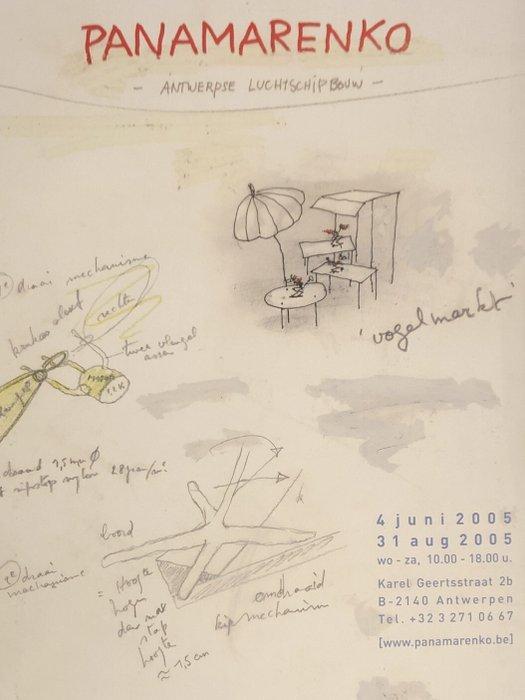 PANAMARENKO
- ANTWERPSE LUCHTSCHIPBOUW -
draai mechanisme
rechts
twee vleugel
assen
'vogelmarkt'
draaad 1,5 mm Ø
ripstop nylon 28 gram/m²
boord
k
2e draai
mechanisme
= Hoogte
hogen
dan mas
stap
hoogte
≈ 1,5 cm
omdraaid
kip mechanism
4 juni 2005
31 aug 2005
wo - za, 10.00 - 18.00 u.
Karel Geertsstraat 2b
B-2140 Antwerpen
Tel. +32 3 271 06 67
[www.panamarenko.be]